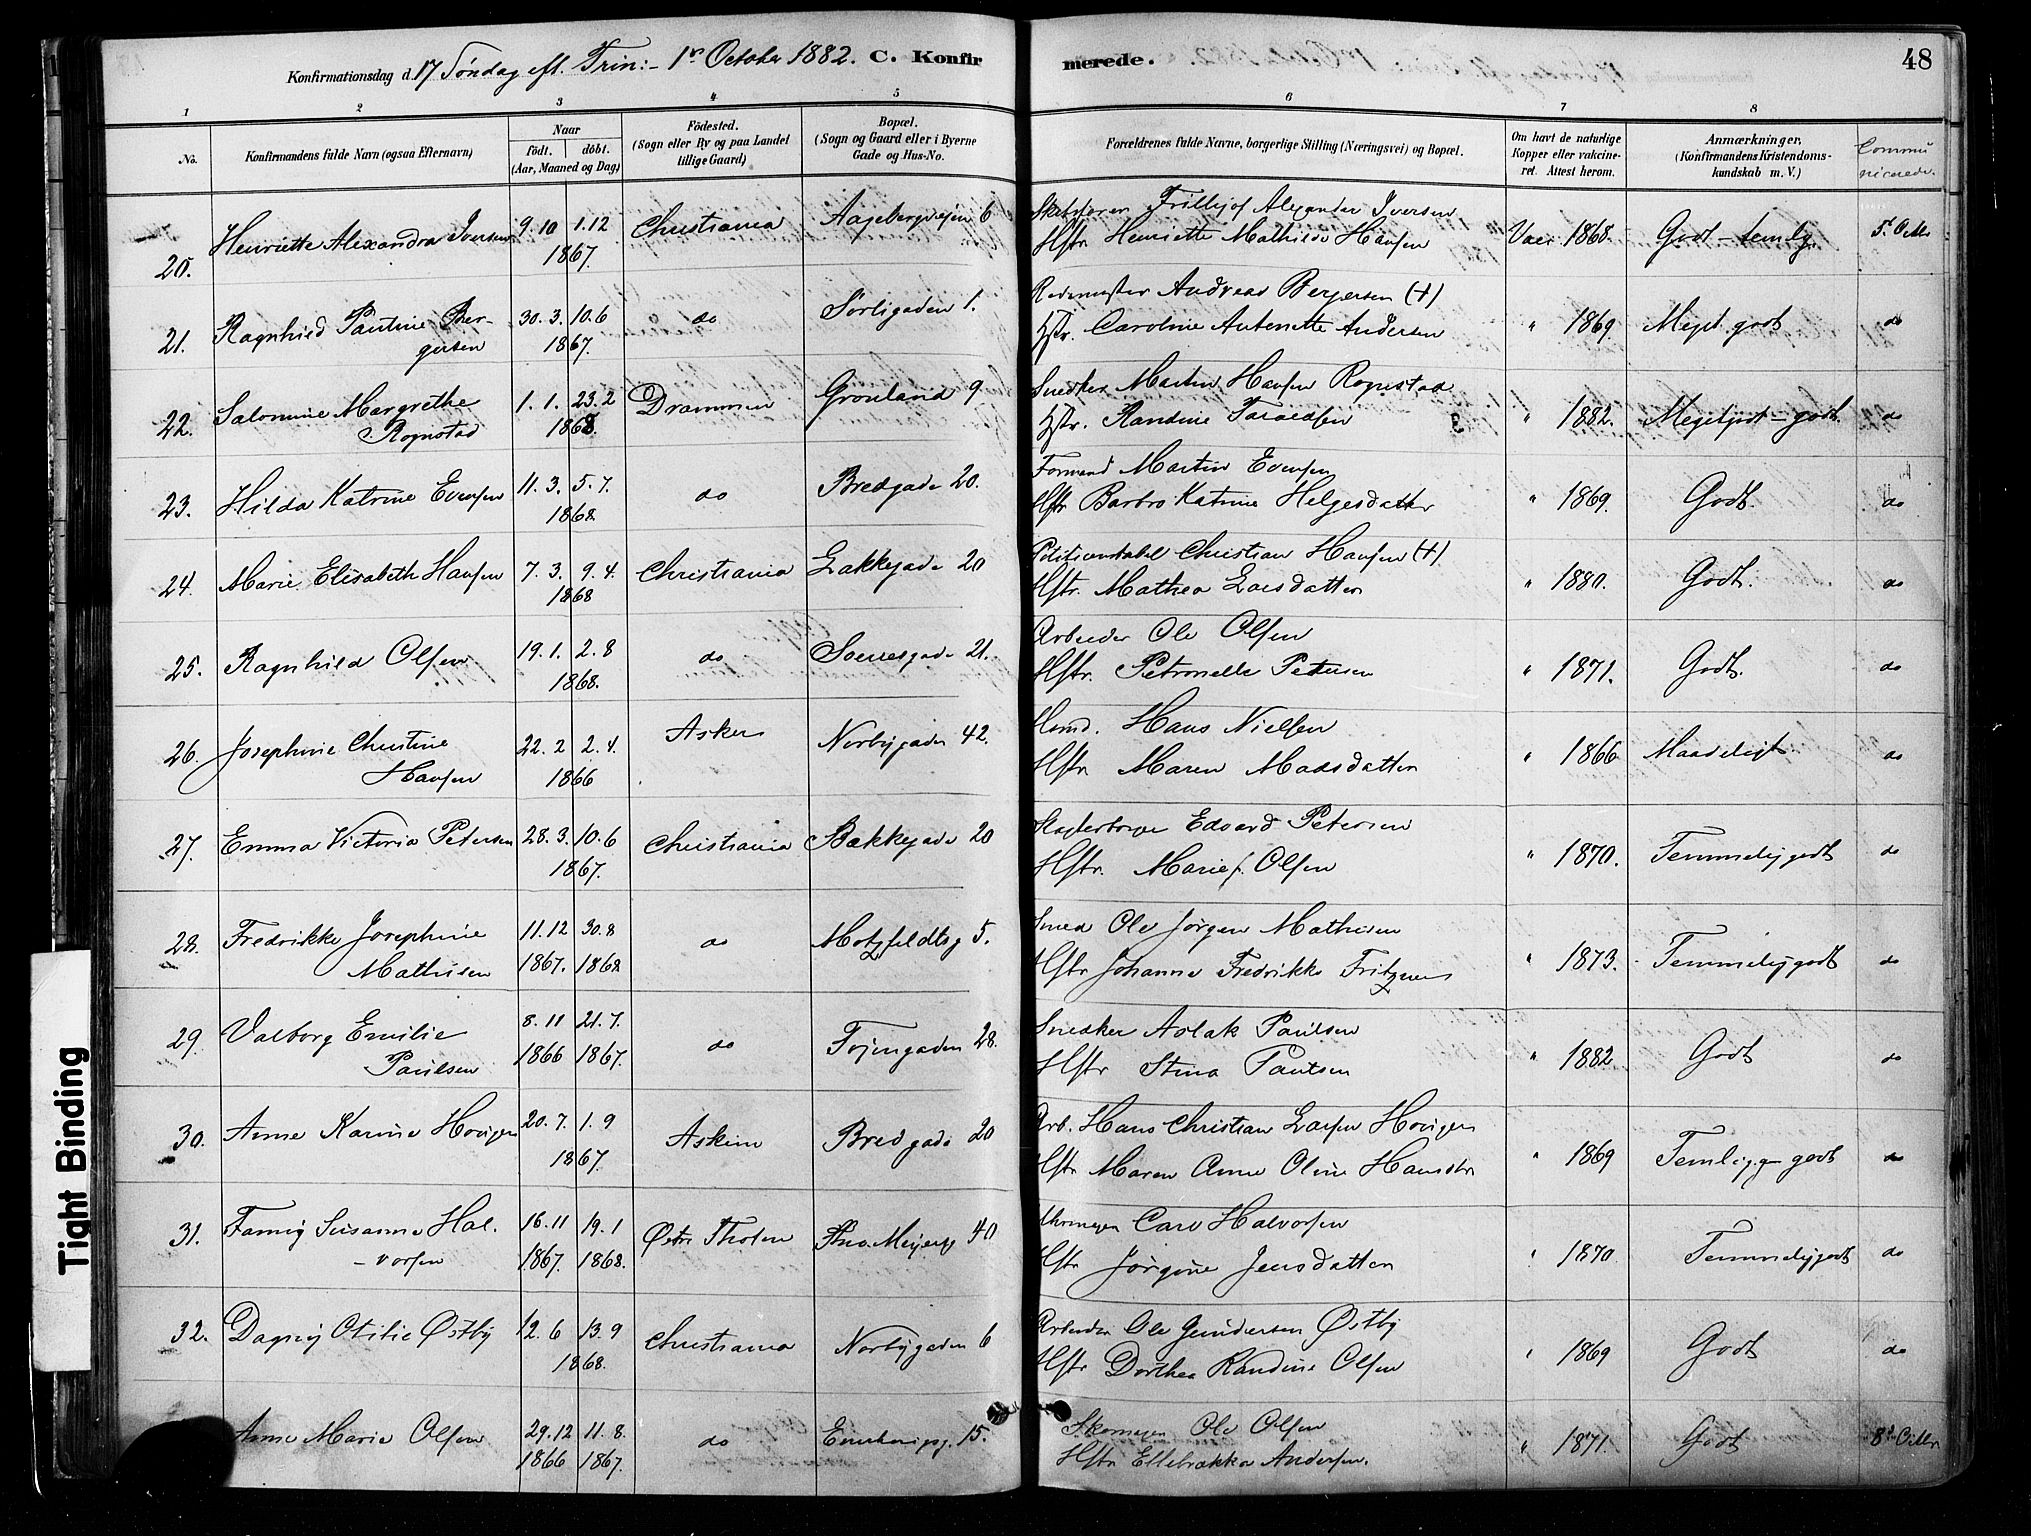 Konfirmationsdag d. 17 Søndag eft. Trin: - 1ste October 1882. C. Konfirmerede. 48
1 2 3 4 5 6 7 8
No. Konfirmandens fulde Navn (ogsaa Efternavn) Naar Födt. döbt. (Aar, Maaned og Dag) Födested. (Sogn eller By og paa Landet tillige Gaard) Bopæl. (Sogn og Gaard eller i Byerne Gade og Hus-No. Forældrenes fulde Navne, borgerlige Stilling (Næringsvei) og Bopæl. Om havt de naturlige Kopper eller vakcineret. Attest herom. Anmærkninger. (Konfirmandens Kristendomskundskab m. V.) Communicerede.
20. Henriette Alexandra Iversen 9.10 1.12 1867. Christiania Aagebergveien 6 Frithjof Alexander Iversen
Hstr Henriette Mathilde Hansen Vacc 1868. Godt - temlig 5t Octbr
21. Ragnhild Pauline Bergersen 30.3. 10.6 1867. do Sørligaden 1. Andreas Bergersen (+)
Hstr. Caroline Antonette Andersen " 1869. Meget godt do
22. Salomine Margrethe Rognstad 1.1. 23.2 1868. Drammen Grønland 9 Snedker Martin Hansen Rognstad
Hstr. Randine " 1882. Meget godt - godt. do
23. Hilda Katrine Evensen 11.3. 5.7. 1868. do Bredgade 20. Formand Martin Evensen
Hstr Barbro Katrine Helgesdatter " 1869. Godt. do
24. Marie Elisabeth Hansen 7.3. 9.4. 1868 Christiania Lakkegade 20 Politiconstabel Christian Hansen (+)
Hstr. Mathea Larsdatter " 1880. Godt. do
25. Ragnhild Olsen 19.1. 2.8 1868. do 21. Arbeider Ole Olsen
Hstr. Petronelle Petersen " 1871. Godt. do
26. Josephine Christine Hansen 22.2 2.4. 1866 Asker Norbygaden 42. Hans Nielsen
Hstr Maren Madsdatter " 1866 Maadeligt do
27. Emma Victoria Petersen 28.3. 10.6 1867. Christiania Bakkegade 20 Edvard Petersen
Hstr. Marie f. Olsen " 1870. Temmelig godt do
28. Fredrikke Josephine Mathisen 11.12 1867. 30.8 1868 do Motzfeldtsg 5. Smed Ole Jörgen Mathisen
Hstr Johanne Fredrikke Fritzner " 1873. Temmelig godt do
29. Valborg Emilie Paulsen 8.11 1866 21.7. 1867. do Töiengaden 28. Snedker Aslak Paulsen
Hstr Stina Paulsen " 1882 Godt do
30. Anne Karine Hovigen 20.7. 1.9 1867. Askim Bredgade 20 Arb. Hans Christian Larsen Hovigen
Hstr Maren Anne Oline Hansdtr " 1869 Temlig godt do
31. Fanny Susanne Halvorsen 16.11 1867. 19.1 1868. Østre Thoten Meyersg 40 Carl Halvorsen
Hstr Jörgine Jensdatter " 1870 Temmelig godt do
32. Dagny Otilie Østby 12.6 13.9 1868. Christiania Norbygaden 6 Arbeider Ole Gundersen Østby
Hstr Dorthea Randine Olsen " 1869 Godt do
Anne Marie Olsen 29.12 1866 11.8. 1867. do 15. Skomager Ole Olsen
Hstr Andersen. " 1871 Godt 8d Octbr
Tight Binding